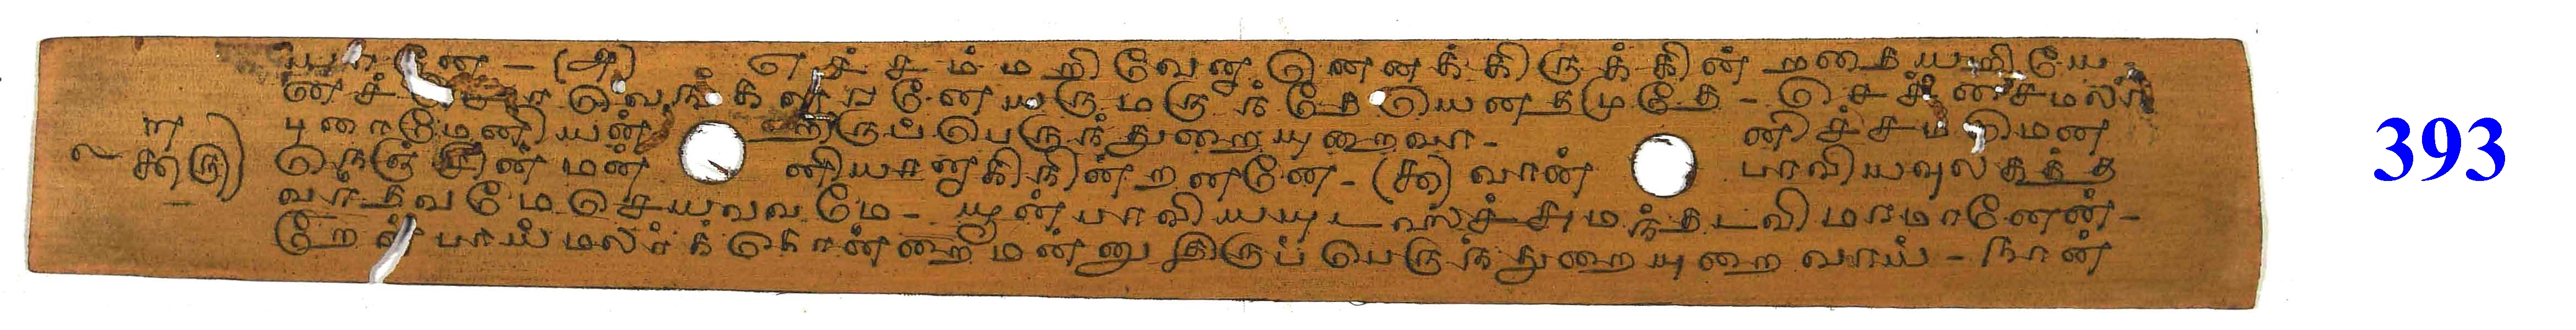 யானே - (அ) எச்சம்மறிவேனானெனக்கிருக்கின்றதையறியே
னச் வெங்களரனேயருமருந்தேயெனதமுதே - செச்சைமலர்
புரைமேனியன் றிருப்பெருந்துறையுறைவா - னிச்சமறிமன
ளகூரு) நெஞ்சின் மன்னியானகிநின்றனனே - (கூ) வான் பாவியவுலகத்த
வரதவமேசெயவவமே - யூன்பாவியயுடலைச்சுமந்தடவிமரமானேன் -
றேன்பாய்மலர்க்கொன்றைமன்னு திருப்பெருந்துறையுறைவாய் - நான்
393